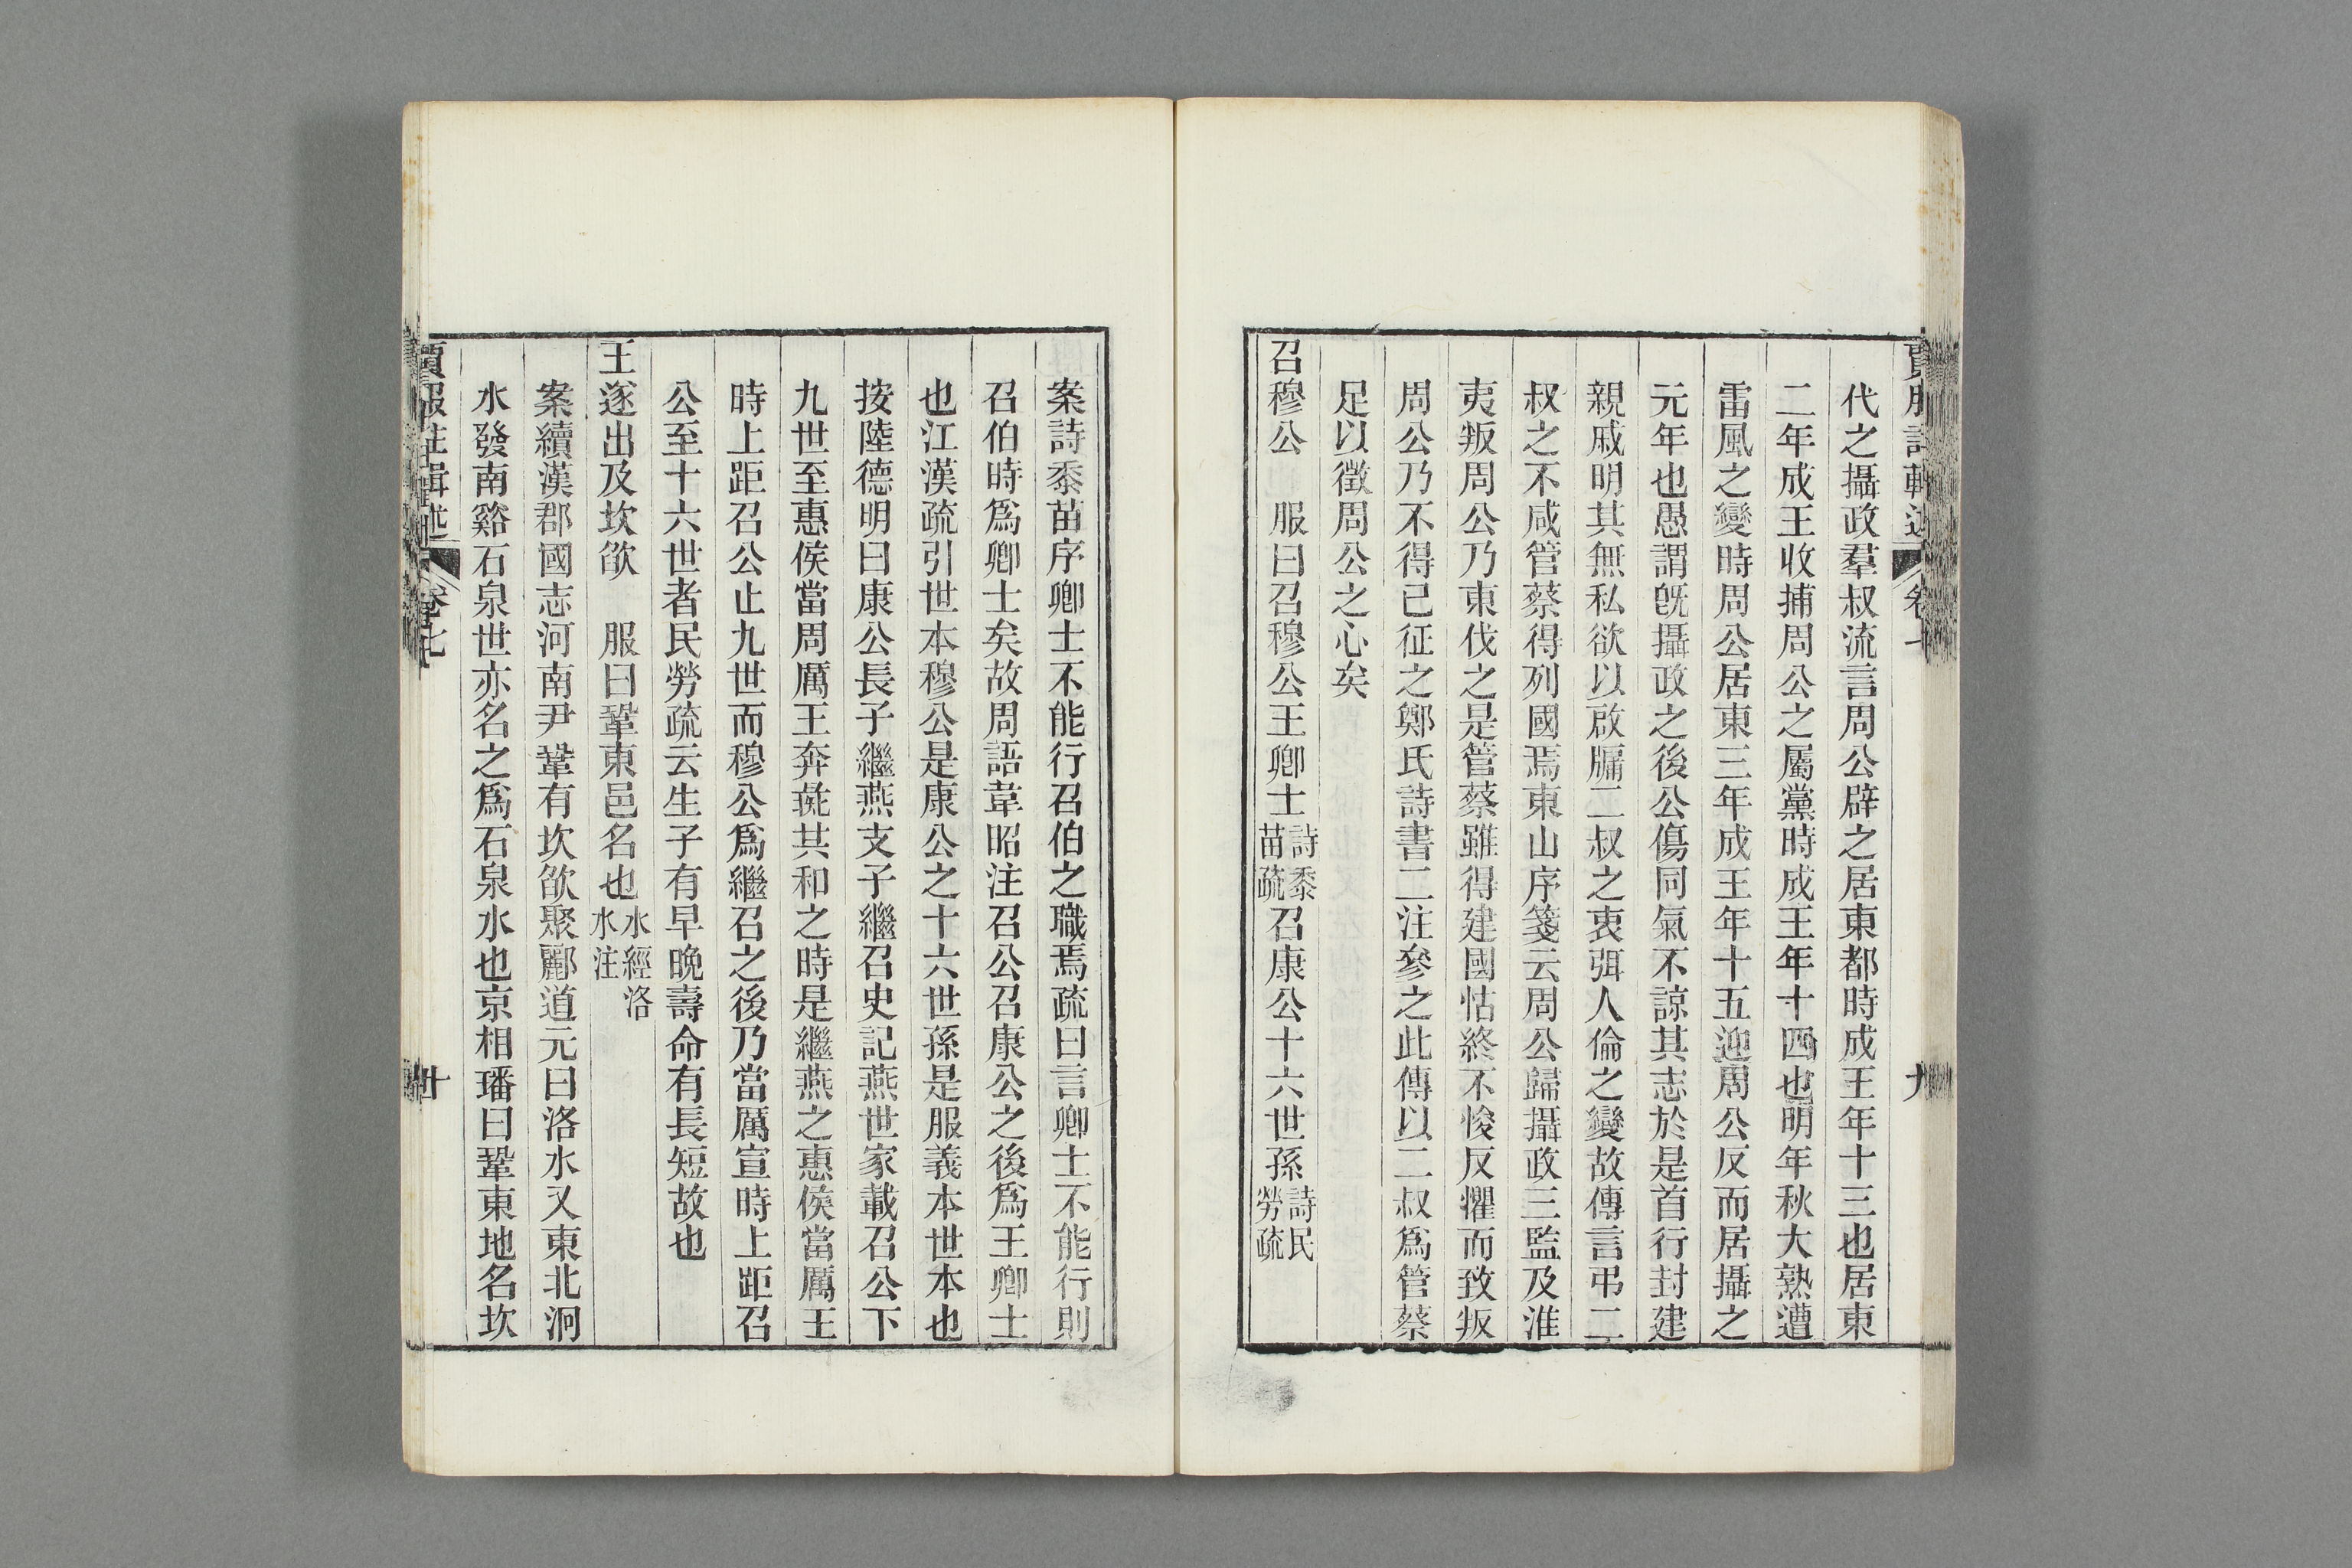 代之攝政羣叔流言周公辟之居東都時成王年十三也居東
二年成王收捕周公之屬黨時成王年十四也明年秋大熟遭
雷風之變時周公居東三年成王年十五迎周公反而居攝之
元年也愚謂旣攝政之後公傷同氣不諒其志於是首行封建
親戚明其無私欲以啟牖二叔之衷弭人倫之變故傳言弔二
叔之不咸管蔡得列國焉東山序箋云周公歸攝政三監及淮
夷叛周公乃東伐之是管蔡雖得建國怙終不悛反懼而致叛
周公乃不得已征之鄭氏詩書二注參之此傳以二叔爲管蔡
足以徵周公之心矣
召穆公　服曰召穆公王卿士詩黍苗疏召康公十六世孫詩民勞疏
案詩黍苗序卿士不能行召伯之職焉疏曰言卿士不能行則
召伯時爲卿士矣故周語韋昭注召公召康公之後爲王卿士
也江漢疏引世本穆公是康公之十六世孫是服義本世本也
按陸德明曰康公長子繼燕支子繼召史記燕世家載召公下
九世至惠侯當周厲王奔彘共和之時是繼燕之惠侯當厲王
時上距召公止九世而穆公爲繼召之後乃當厲宣時上距召
公至十六世者民勞疏云生子有早晚壽命有長短故也
王遂出及坎欿　服曰鞏東邑名也水經洛水注
案續漢郡國志河南尹鞏有坎欿聚酈道元曰洛水又東北泂
水發南谿石泉世亦名之爲石泉水也京相璠曰鞏東地名坎
賈服註輯述
卷七
十